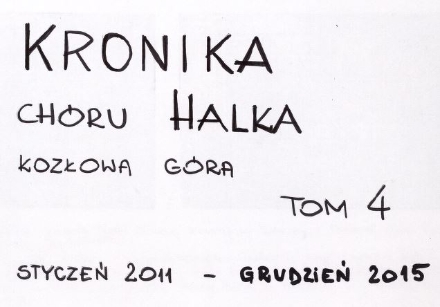 KRONIKA
CHÓRU HALKA
KOZŁOWA GÓRA
TOM 4
STYCZEŃ 2011 - GRUDZIEŃ 2015